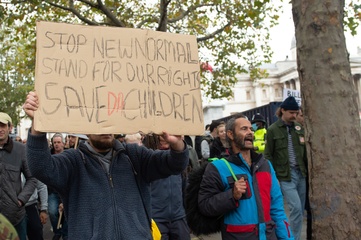 STOP NEW NORMAL
STAND FOR OUR RIGHT
SAVE CHILDREN